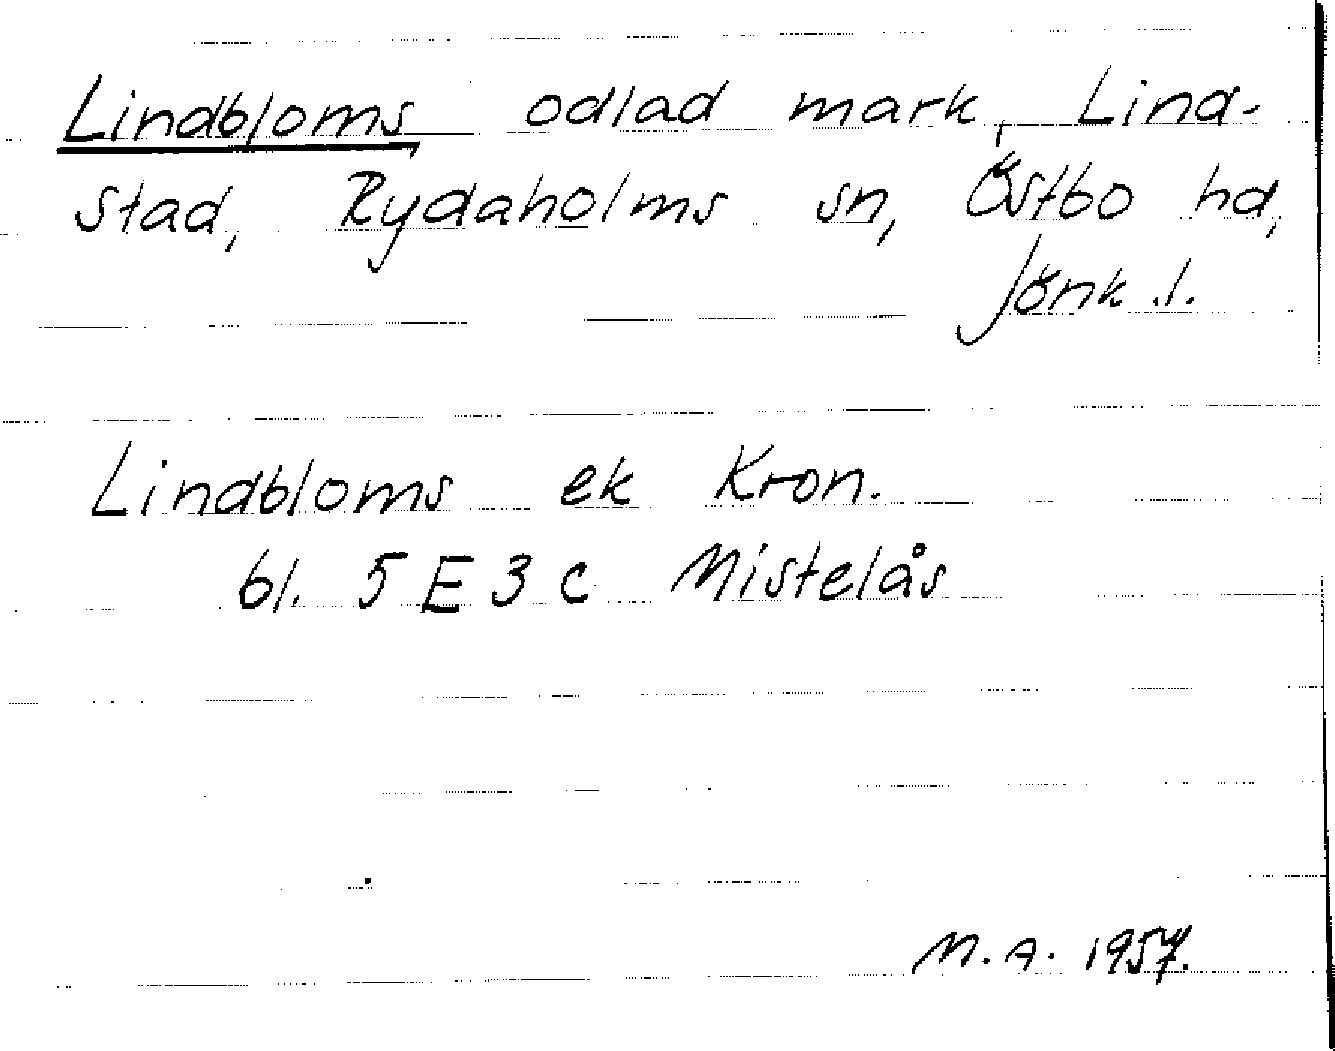 Lindbloms odlad mark, Lind-
stad, Rydaholms sn, Östbo hd,
Jönk.l.
Lindbloms ek Kron.
bl. 5 E 3 c Mistelås
M.A. 1957.